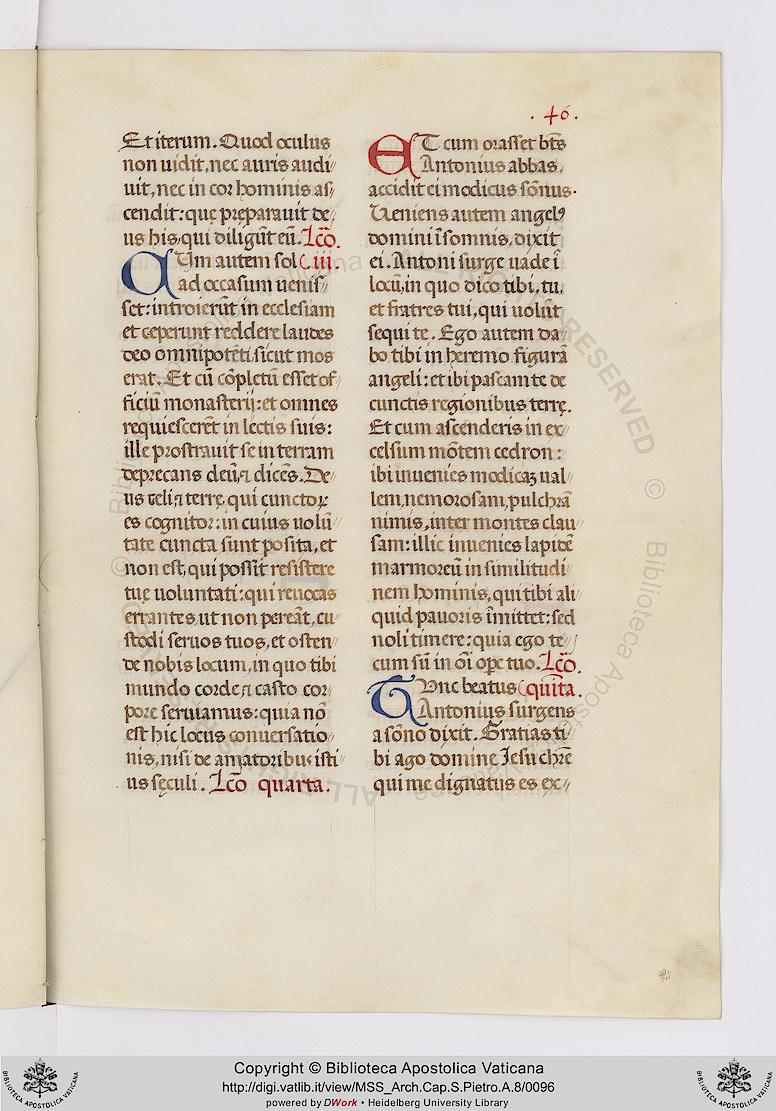 .46.
Et iterum. Quod oculus
non uidit, nec auris audi//
uit, nec in cor hominis as//
cendit: quę pręparauit de//
us his, qui diligūt eū. Lcō.
CUm autem sol iii.
ad occasum uenis//
set: introierūt in ecclesiam
et ceperunt reddere laudes
deo omnipotēti, sicut mos
erat. Et cū cōpletū esset of//
ficiū monasterij: et omnes
requiescerēt in lectis suis:
ille prostrauit se in terram
deprecans deū, ⁊ dicēs. De//
us celi ⁊ terrę, qui cunctoꝝ
es cognitor: in cuius uolū//
tate cuncta sunt posita, et
non est, qui possit resistere
tuę uoluntati: qui reuocas
errantes, ut non pereāt, cu//
stodi seruos tuos, et osten//
de nobis locum, in quo tibi
mundo corde ⁊ casto cor//
pore seruiamus: quia nō
est hic locus conuersatio//
nis, nisi de amatoribus isti//
us sęculi. Lcō quarta.
ET cum orasset bt̄s
Antonius abbas,
accidit ei modicus sōnus.
Ueniens autem angelꝰ
domini ī somnis, dixit
ei. Antoni surge uade ī
locū, in quo dico tibi, tu,
et fratres tui, qui uolūt
sequi te. Ego autem da//
bo tibi in heremo figurā
angeli: et ibi pascam te de
cunctis regionibus terrę.
Et cum ascenderis in ex//
celsum mōtem cedron:
ibi inuenies modicaꝫ ual//
lem, nemorosam, pulchrā
nimis, inter montes clau//
sam: illic inuenies lapidē
marmoreū in similitudi//
nem hominis, qui tibi ali//
quid pauoris īmittet: sed
noli timere: quia ego te//
cum sū in oī ope tuo. Lcō.
TUnc beatus quīta.
Antonius surgens
a sōno dixit. Gratias ti//
bi ago domine Iesu chrē
qui me dignatus es ex//
Copyright © Biblioteca Apostolica Vaticana
http://digi.vatlib.it/view/MSS_Arch.Cap.S.Pietro.A.8/0096
powered by DWork • Heidelberg University Library